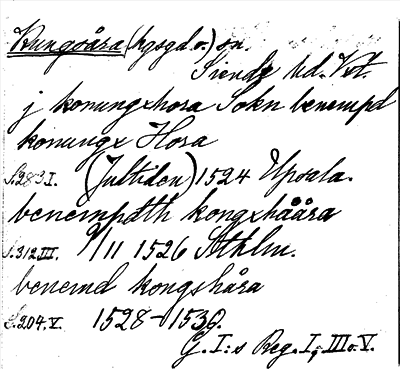 Kungsåra (hgsgd. o.) sn.
Siende hd. Vst.
j konungxhora Sokn benempd
konungx Hora
S.283.I. (Jultiden) 1524 Upsala.
benempdth kongxhåara
S.312.III. 9/11 1526 Sthlm.
benemd kongshåra
S.204.V. 1528-1530.
G. I:s Reg. I, III o. V.